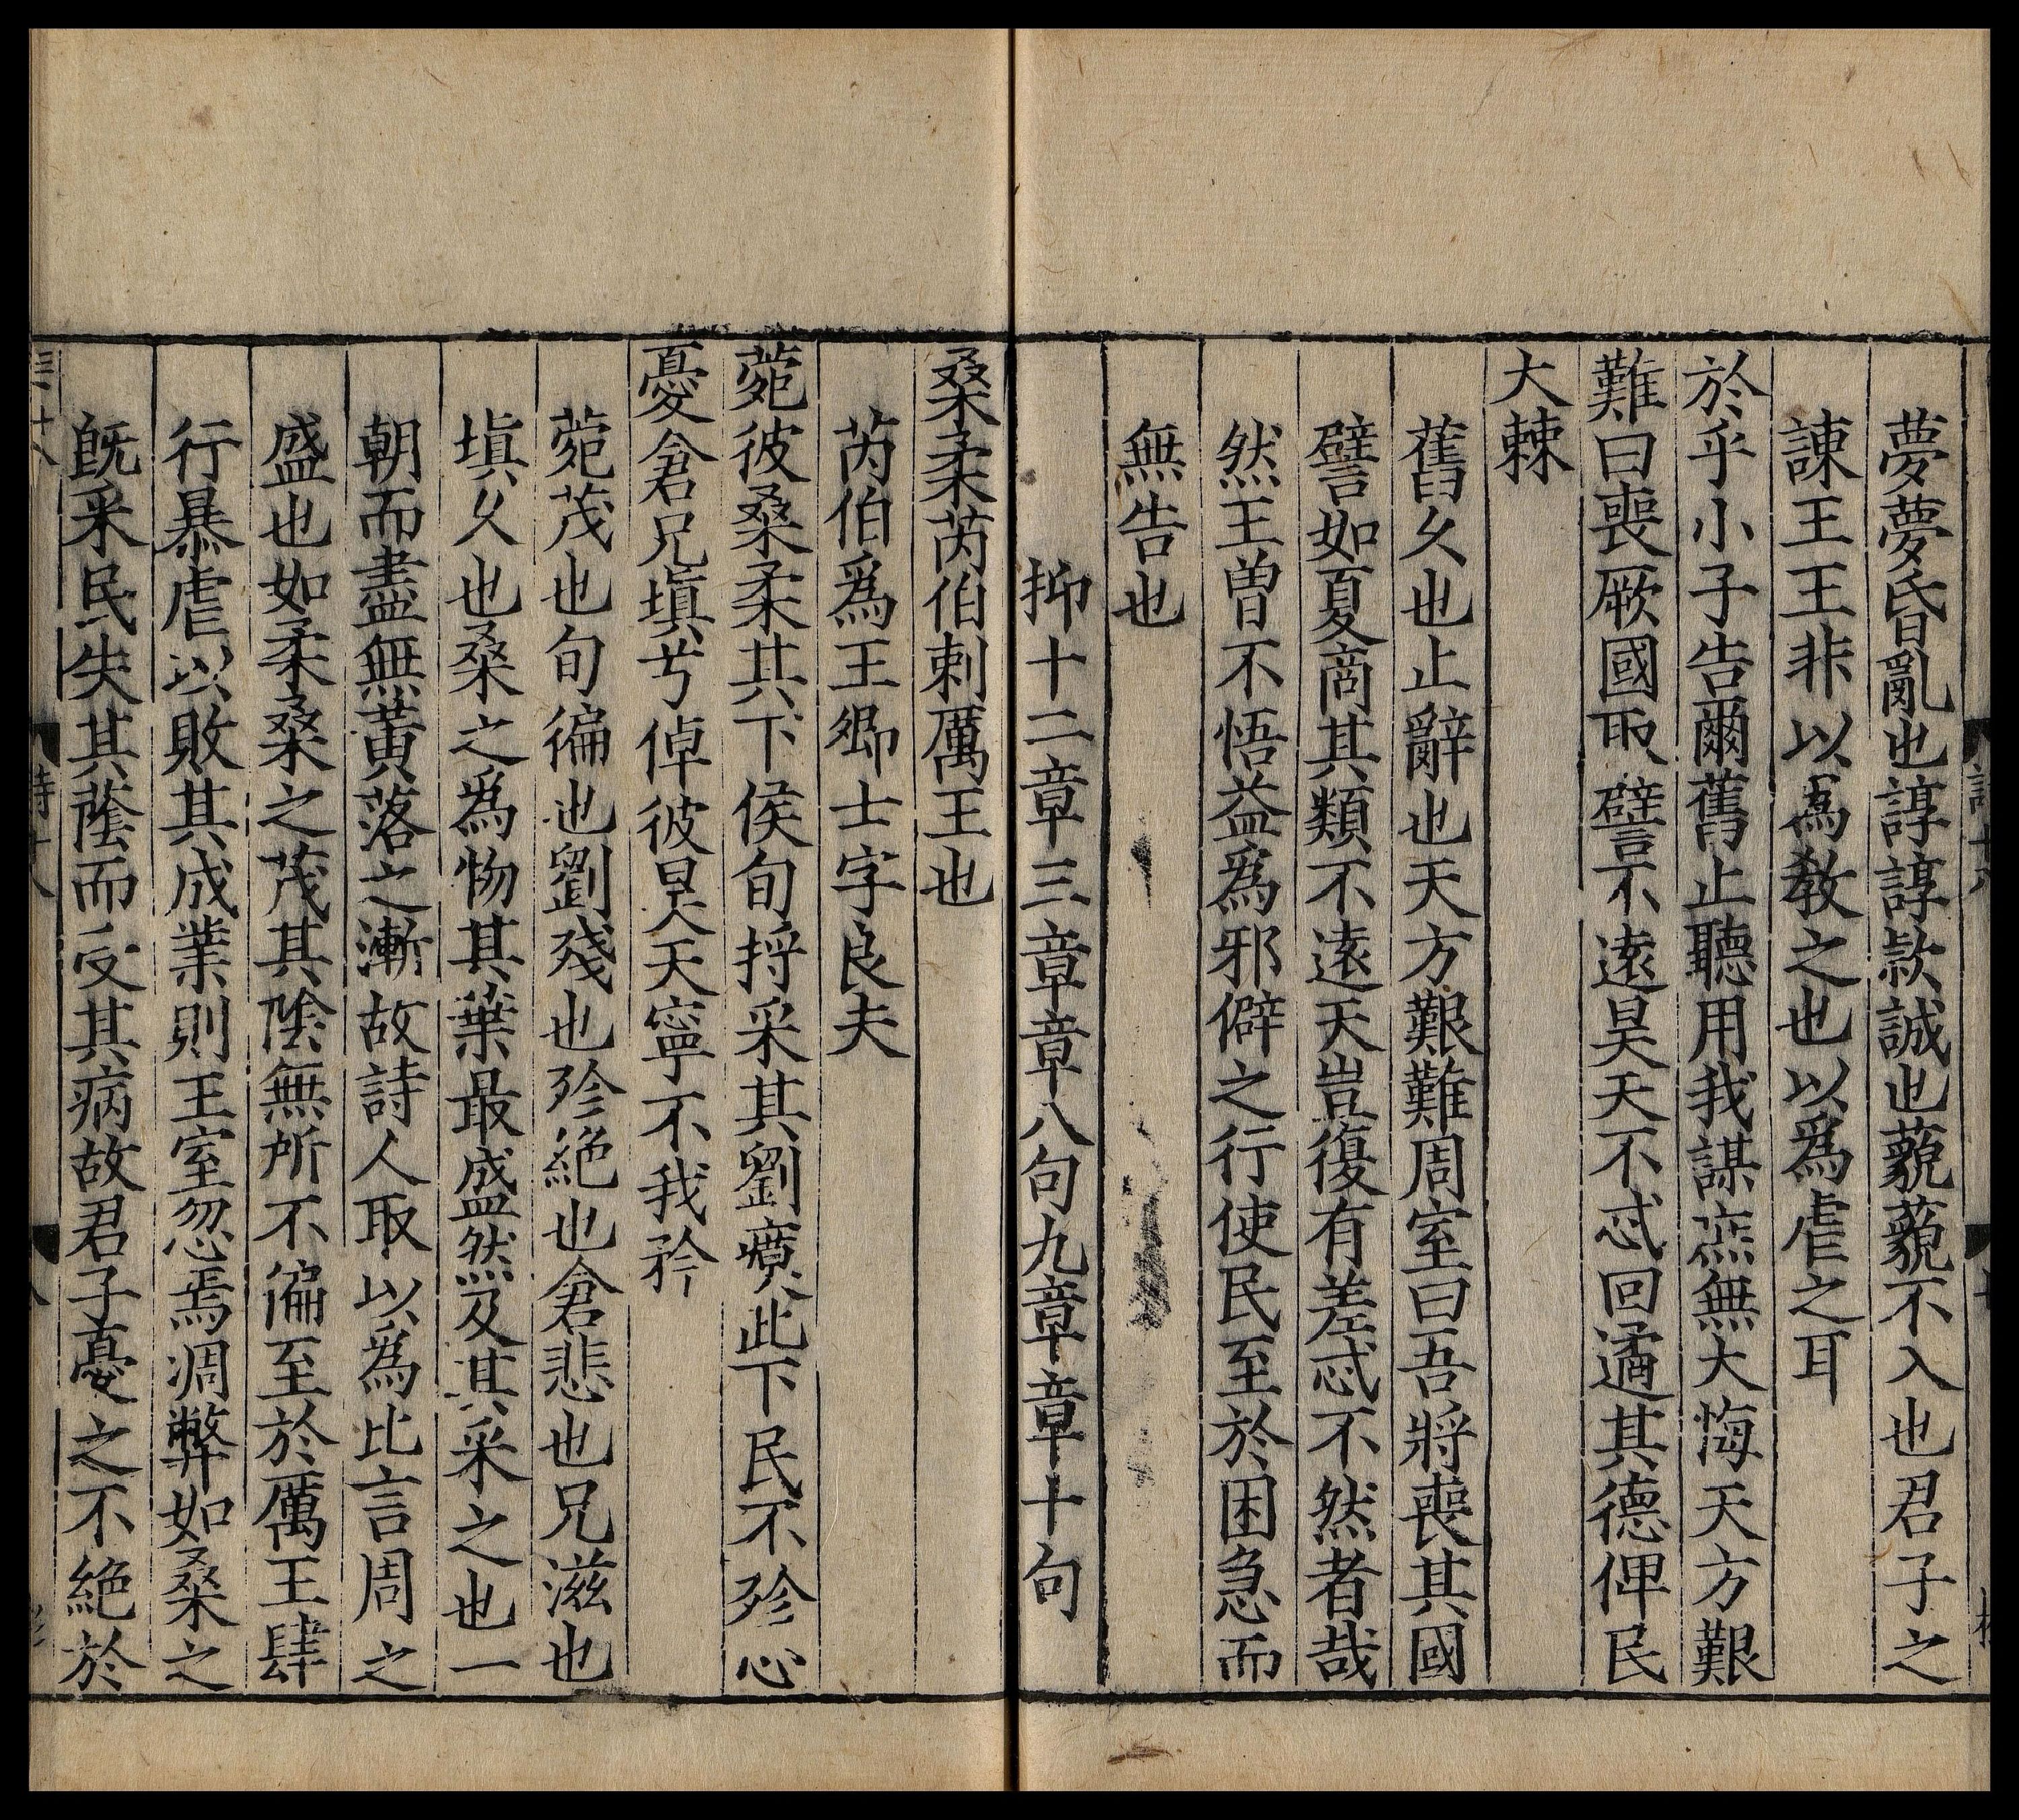 夢夢昏亂也諄諄款誠也藐藐不入也君子之
諫王王非以爲教之也以爲虐之耳
於乎小子告爾舊止聽用我謀庶無大悔天方艱
難曰喪厥國取譬不遠昊天不忒回遹其德俾民
大棘
舊久也止辭也天方艱難周室曰吾將喪其國
譬如夏商其類不遠天豈復有差忒不然者哉
然王曾不悟益爲邪僻之行使民至於困急而
無告也
抑十二章三章章八句九章章十句
桑柔芮伯刺厲王也
芮伯爲王卿士字良夫
菀彼桑柔其下侯旬捋采其劉瘼此下民不殄心
憂倉兄塡兮倬彼昊天寧不我矜
菀茂也旬徧也劉殘也殄絕也倉悲也兄滋也
塡久也桑之爲物其葉最盛然及其采之也一
朝而盡無黃落之漸故詩人取以爲比言周之
盛也如柔桑之茂其陰無所不徧至於厲王肆
行暴虐以敗其成業則王室忽焉凋弊如桑之
旣采民失其蔭而受其病故君子憂之不絕於
詩十八